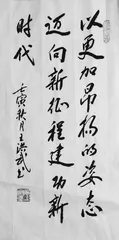 以更加昂扬的姿态
迈向新征程建功新
时代
壬寅秋月王洪武书